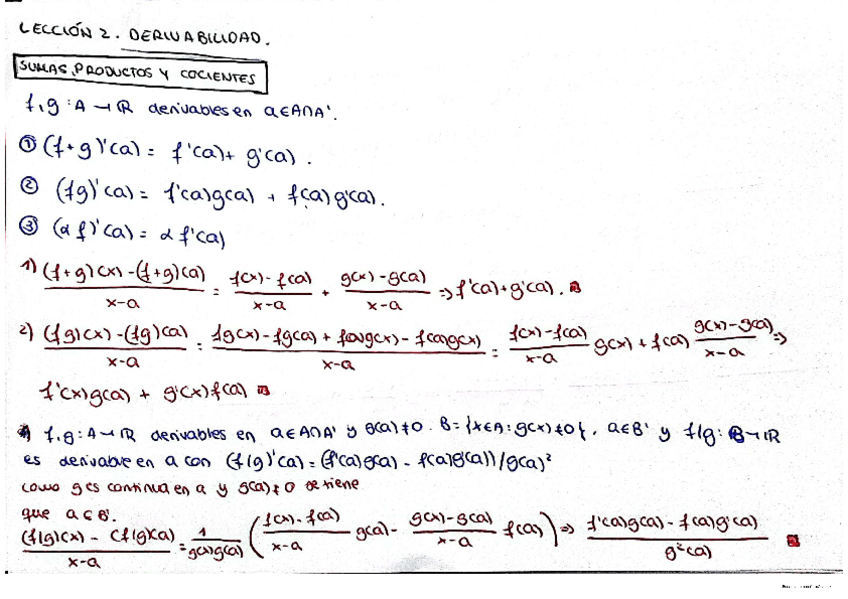 LECCIÓN 2. DERIVABILIDAD.
SUMAS, PRODUCTOS Y COCIENTES
f,g: A → ℝ derivables en a∈A∩A'.
① (f+g)'(a) = f'(a) + g'(a).
② (fg)'(a) = f'(a)g(a) + f(a)g'(a).
③ (αf)'(a) = αf'(a)
1) ((f+g)(x)-(f+g)(a))/(x-a) = (f(x)-f(a))/(x-a) + (g(x)-g(a))/(x-a) ⇒ f'(a)+g'(a).
2) ((fg)(x)-(fg)(a))/(x-a) = (fg(x)-fg(a) + f(a)g(x) - f(a)g(x))/(x-a) = (f(x)-f(a))/(x-a) g(x) + f(a) (g(x)-g(a))/(x-a) ⇒
f'(x)g(a) + g'(x)f(a)
f,g: A→ℝ derivables en a∈A∩A' y g(a)≠0. B={x∈A: g(x)≠0}, a∈B' y f/g: B→ℝ
es derivable en a con (f/g)'(a) = (f'(a)g(a) - f(a)g'(a))/g(a)²
como g es continua en a y g(a)≠0 se tiene
que a∈B'.
((f/g)(x) - (f/g)(a))/(x-a) = 1/(g(x)g(a)) ((f(x)-f(a))/(x-a) g(a) - (g(x)-g(a))/(x-a) f(a)) ⇒ (f'(a)g(a) - f(a)g'(a))/g²(a)